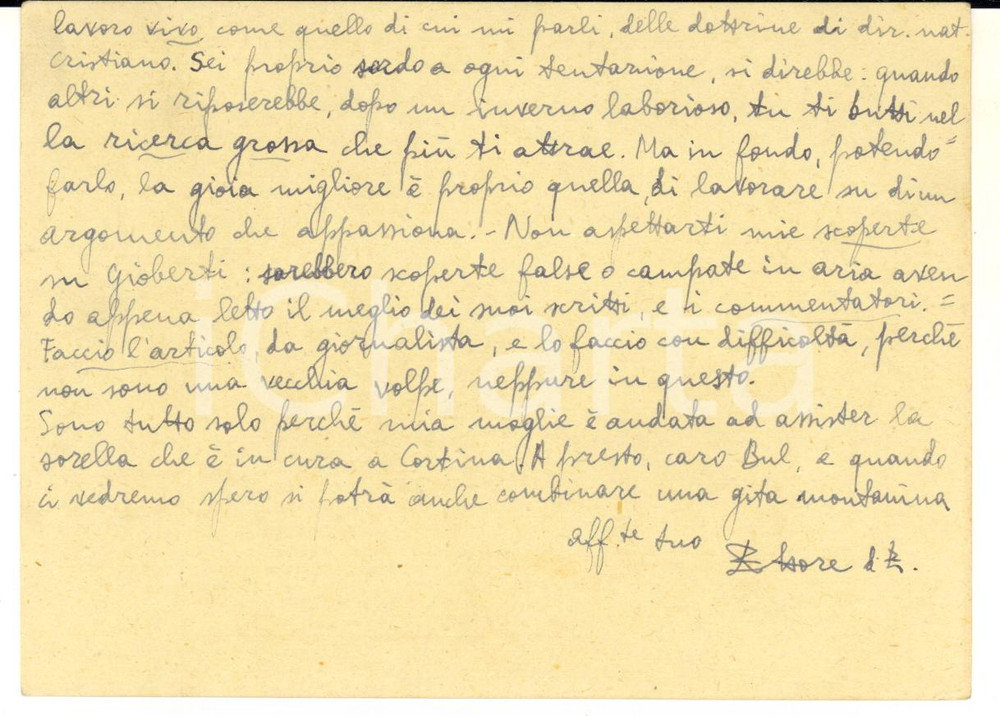 lavoro vivo come quello di cui mi parli, delle dottrine di dir. nat.
cristiano. Sei proprio sordo a ogni tentazione, si direbbe: quando
altri si riposerebbe, dopo un inverno laborioso, tu ti butti nel
la ricerca grossa che più ti attrae. Ma in fondo, potendo=
farlo, la gioia migliore è proprio quella, di lavorare su di un
argomento che appassiona. - Non aspettarti mie scoperte
su Gioberti: sarebbero scoperte false o campate in aria aven
do appena letto il meglio dei suoi scritti, e i commentatori. =
Faccio l'articolo, da giornalista, e lo faccio con difficoltà, perché
non sono una vecchia volpe, neppure in questo.
Sono tutto solo perché mia moglie è andata ad assister la
sorella che è in cura a Cortina. A presto, caro Bul, e quando
ci vedremo spero si potrà anche combinare una gita montanina
aff.te tuo
Ettore d. Z.
iCharta